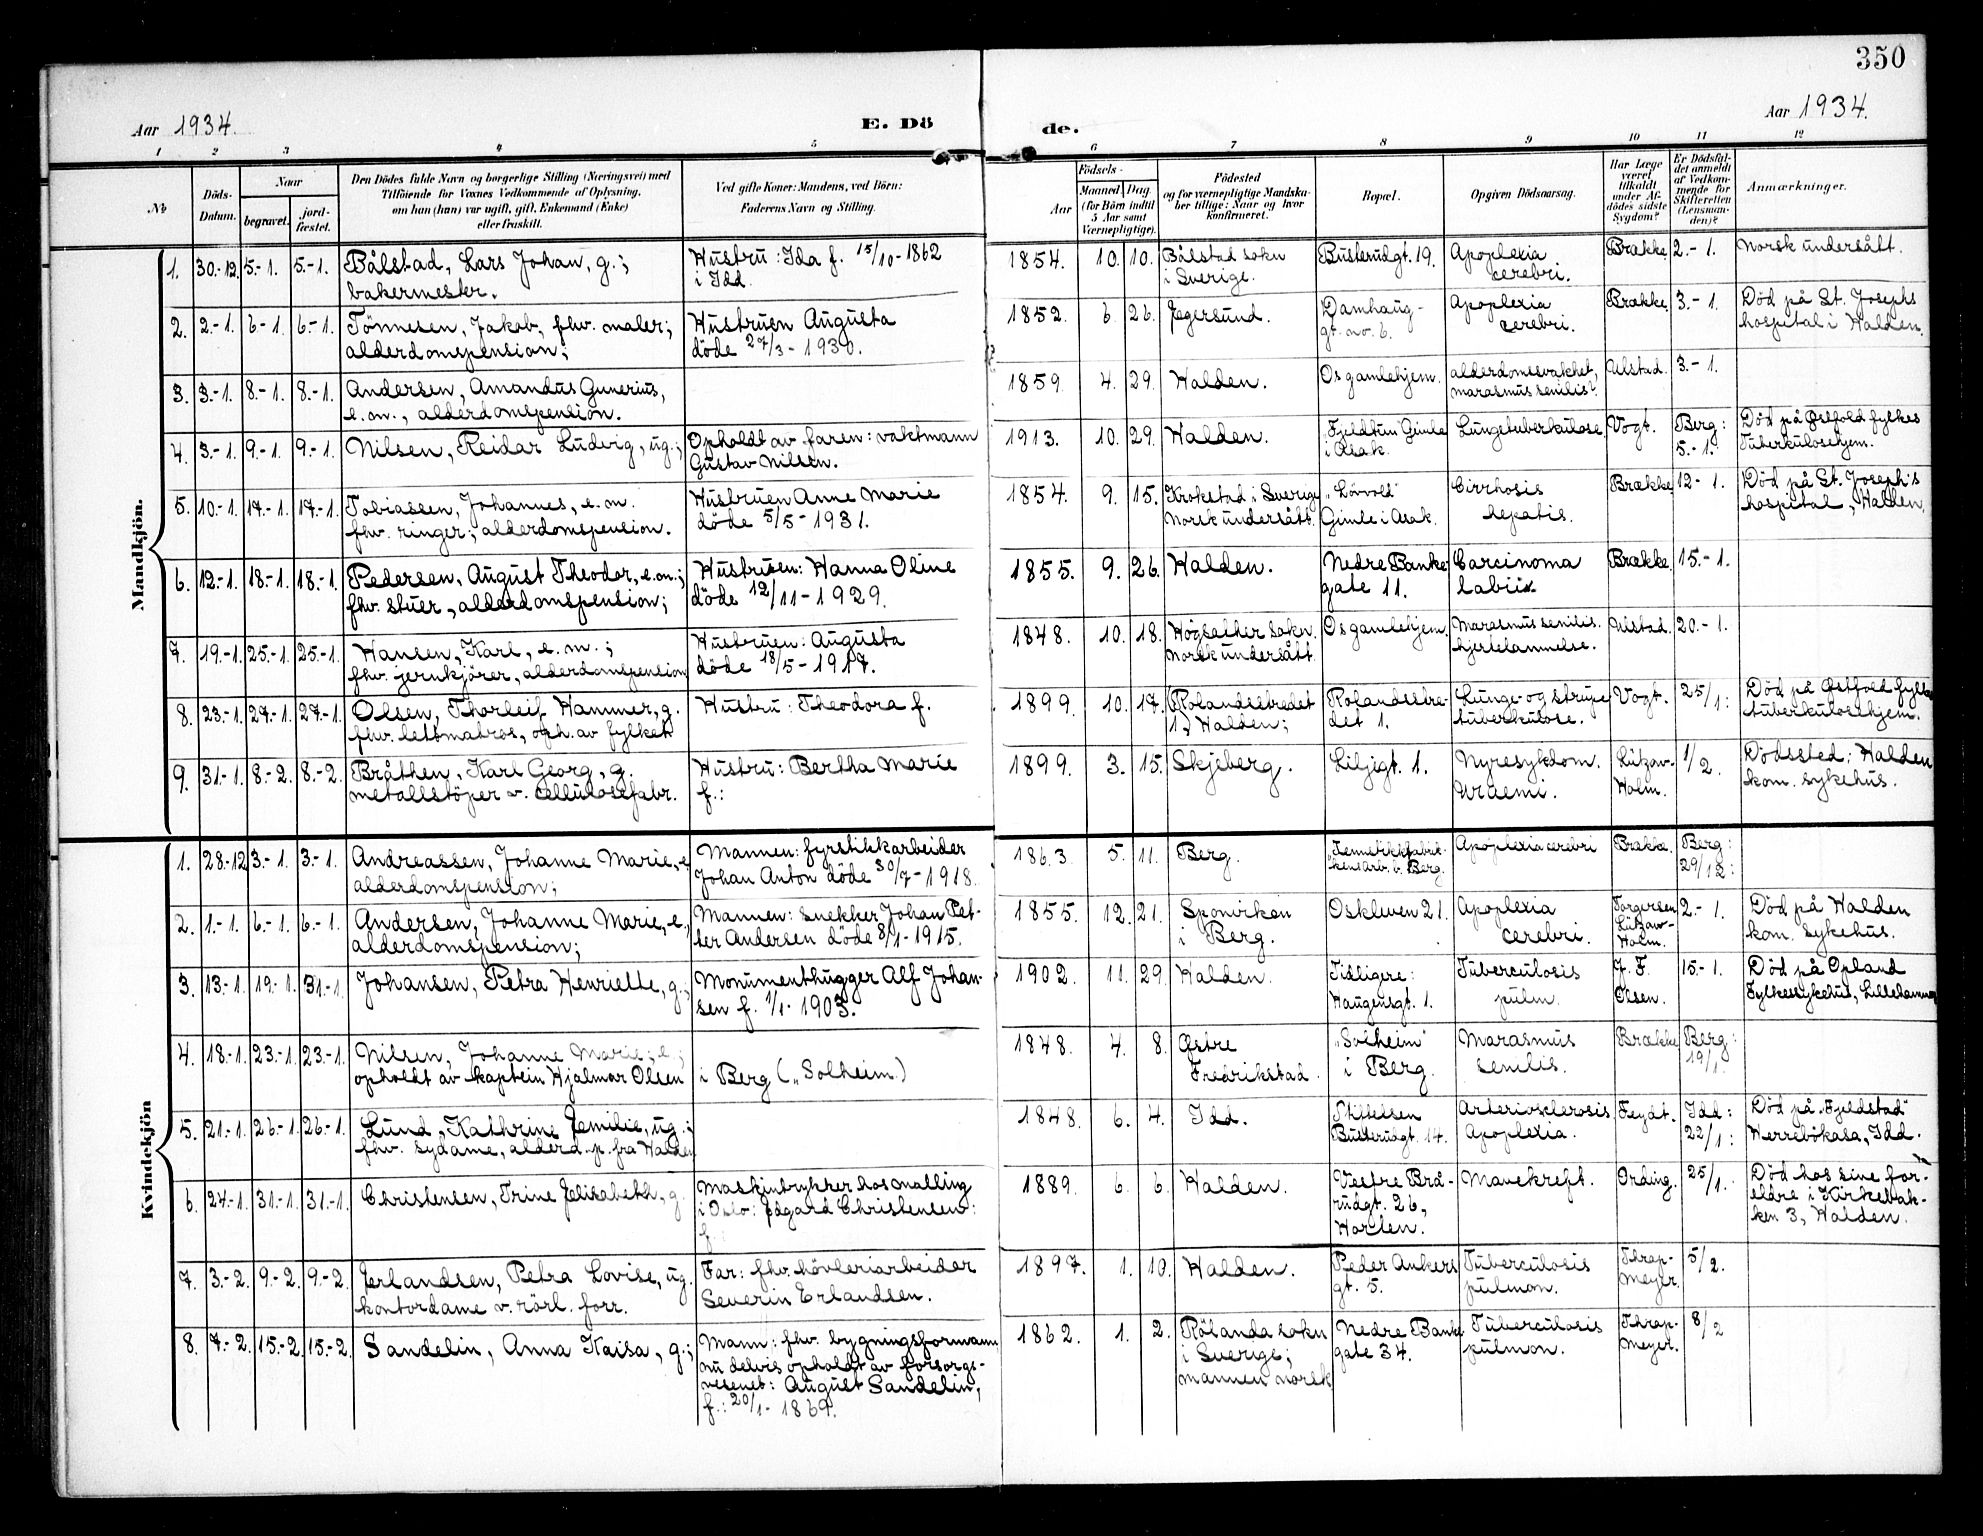 350
Aar 1934.
E. Dö
de.
Aar 1934.
1 2 3 4 5 6 7 8 9 10 11 12
№
Döds-
Datum.
Naar
begravet.
jord-
fæstet.
Den Dödes fulde Navn og borgerlige Stilling (Næringsvei) med
Tilföiende for Voxnes Vedkommende af Oplysning,
om han (hun) var ugift, gift, Enkemand (Enke)
eller fraskilt.
Ved gifte Koner: Mandens, ved Börn:
Faderens Navn og Stilling.
Födsels-
Aar
Maaned. Dag.
(for Börn indtil
5 Aar samt
Værnepligtige).
Födested
og for værnepligtige Mandska-
ber tillige: Naar og hvor
konfirmeret.
Bopæl.
Opgiven Dödsaarsag.
Har Læge
været
tilkaldt
under Af-
dödes sidste
Sygdom?
Er Dödsfal-
det anmeldt
af Vedkom-
mende for
Skifteretten
(Lensman-
den)?
Anmærkninger.
Mandkjön.
1. 30.-12. 5.-1. 5.-1. Bålstad, Lars Johan, g.; Hustru: Ida f. 15/10-1862 1854. 10. 10. Bålstad sokn Busterudgt. 19. Apoplexia Brække. 2.-1. Norsk undersått.
bakermester. i Idd. i Sverige. cerebri.
2. 2.-1. 6-1. 6.-1. Tönnesen, Jakob, fhv. maler; Hustruen Augusta 1852. 6. 26. Egersund. Damhaug- Apoplexia Brække. 3.-1. Död på St. Josephs
alderdomspension; döde 27/3-1930. gt. no. 6. cerebri. hospital i Halden.
3. 3.-1. 8.-1. 8.-1. Andersen, Amandus Gunerius, 1859. 4. 29. Halden. Os gamlehjem. alderdomssvakhet, Ulstad. 3.-1.
e.m., alderdomspension. marasmus senilis?
4. 3.-1. 9.-1. 9.-1. Nilsen, Reidar Ludvig, ug.; Opholdt av faren: vaktmann 1913. 10. 29. Halden. Fjeldtun Gimle Lungetuberkulose. Vogt. Berg: Död på Østfold fylkes
Gustav Nilsen. i Asak. 5.-1. Tuberkulosehjem.
5. 10.-1. 17.-1. 17.-1. Tobiassen, Johannes, e.m. Hustruen Anne Marie 1854. 9. 15. Krokstad i Sverige „Lövvold" Cirrhosis Brække. 12-1. Död på St. Joseph's
fhv. ringer; alderdomspension. döde 5/5-1931. Norsk undersått. Gimle i Asak. hepatis. hospital, Halden.
6. 12.-1. 18.-1. 18.-1. Pedersen, August Theodor, e.m.; Hustruen: Hanna Oline 1855. 9. 26. Halden. Nedre Banke Carcinoma Brække. 15.-1.
fhv. stuer, alderdomspension; döde 12/11-1929. gate 11. labii.
7. 19.-1. 25.-1. 25.-1. Hansen, Karl, e.m.; Hustruen: Augusta 1848. 10. 18. Högsäther sokn. Os gamlehjem. Marasmus senilis. Ulstad. 20.-1.
fhv. jernkjörer, alderdomspension döde 18/5-1917. Norsk undersått. hjertelammelse.
8. 23.-1. 27.-1. 27.-1. Olsen, Thorleif Hammer, g. Hustru: Theodora f. 1899. 10. 17. Rolandsstredet Rolandsstre- Lunge- og strupe Vogt. 25/1: Död på Østfold fylkes
fhv. lettmatros, oph. av fylket 1, Halden; det 1. tuberkulose. tuberkulosehjem.
9. 31.-1. 8.-2. 8.-2. Bråthen, Karl Georg, g. Hustru: Bertha Marie 1899. 3. 15. Skjeberg. Liljegt. 1. Nyresykdom. Lützow- 1/2. Dödssted: Halden
metallstöper v. cellulosefabr. f.: Uraemi. Holm. kom. sykehus.
Kvindekjön
1. 28.-12 3.-1. 3.-1. Andreassen, Johanne Marie, e. Mannen: fyrstikkarbeider 1863. 5. 11. Berg. Apoplexia cerebri Brække. Berg:
alderdomspension; Johan Anton döde 30/7-1918. Berg. 29/12:
2. 1.-1. 6.-1. 6.-1. Andersen, Johanne Marie, e. Mannen: snekker Johan Pet- 1855. 12. 21. Sponviken Oskleven 21. Apoplexia Torgersen 2.-1. Död på Halden
alderdomspension; ter Andersen döde 8/1-1915. i Berg. cerebri. Lützow-Holm. kom. sykehus.
3. 13.-1. 19.-1. 31.-1. Johansen, Petra Henriette, g.; Monumenthugger Alf Johan- 1902. 11. 29. Halden. Tidligere: Tuberculosis J. F. 15.-1. Död på Opland
sen f. 1/1-1903. Haugensgt. 1. pulm. Olsen. Fylkessykehus, Lillehammer
4. 18.-1. 23.-1. 23.-1. Nilsen, Johanne Marie, e.; 1848. 4. 8. Østre „Solheim" Marasmus Brække Berg:
opholdt av kaptein Hjalmar Olsen i Berg („Solheim.) Fredrikstad. i Berg. senilis. 19/1.
5. 21.-1. 26.-1. 26.-1. Lund, Kathrine Emilie, ug.; 1848. 6. 4. Idd. Stiftelsen Arteriosclerosis. Feydt. Idd: Död på „Fjeldstad"
fhv. sydame, alderd.p. fra Halden Busterudgt. 14. Apoplexia. 22/1: Herrebökasa, Idd.
6. 24.-1. 31.-1. 31.-1. Christensen, Trine Elisabeth, g. Maskintrykker hos Malling 1889. 6. 6. Halden. Vestre Brå- Mavekreft. Ording. 25/1. Död hos sine for-
i Oslo: Edgard Christensen: rudgt. 26, eldre i Kirkebak-
f. Halden. ken 3, Halden.
7. 3.-2. 9.-2. 9.-2. Erlandsen, Petra Lovise, ug. Far: fhv. hövleriarbeider 1897. 1. 10. Halden. Peder Ankers Tuberculosis Thrap- 5/2.
kontordame v. rörl. forr. Severin Erlandsen. gt. 5. pulmon. Meyer.
8. 7.-2. 15.-2. 15.-2. Sandelin, Anna Kaisa, g.; Mann: fhv. bygningsformann 1862. 1. 2. Rölanda sokn Nedre Banke Tuberculosis Thrap- 8/2
nu delvis opholdt av forsorgs- i Sverige; gate 34. pulmon. Meyer.
vesenet: August Sandelin, mannen norsk
f.: 20/1-1869.